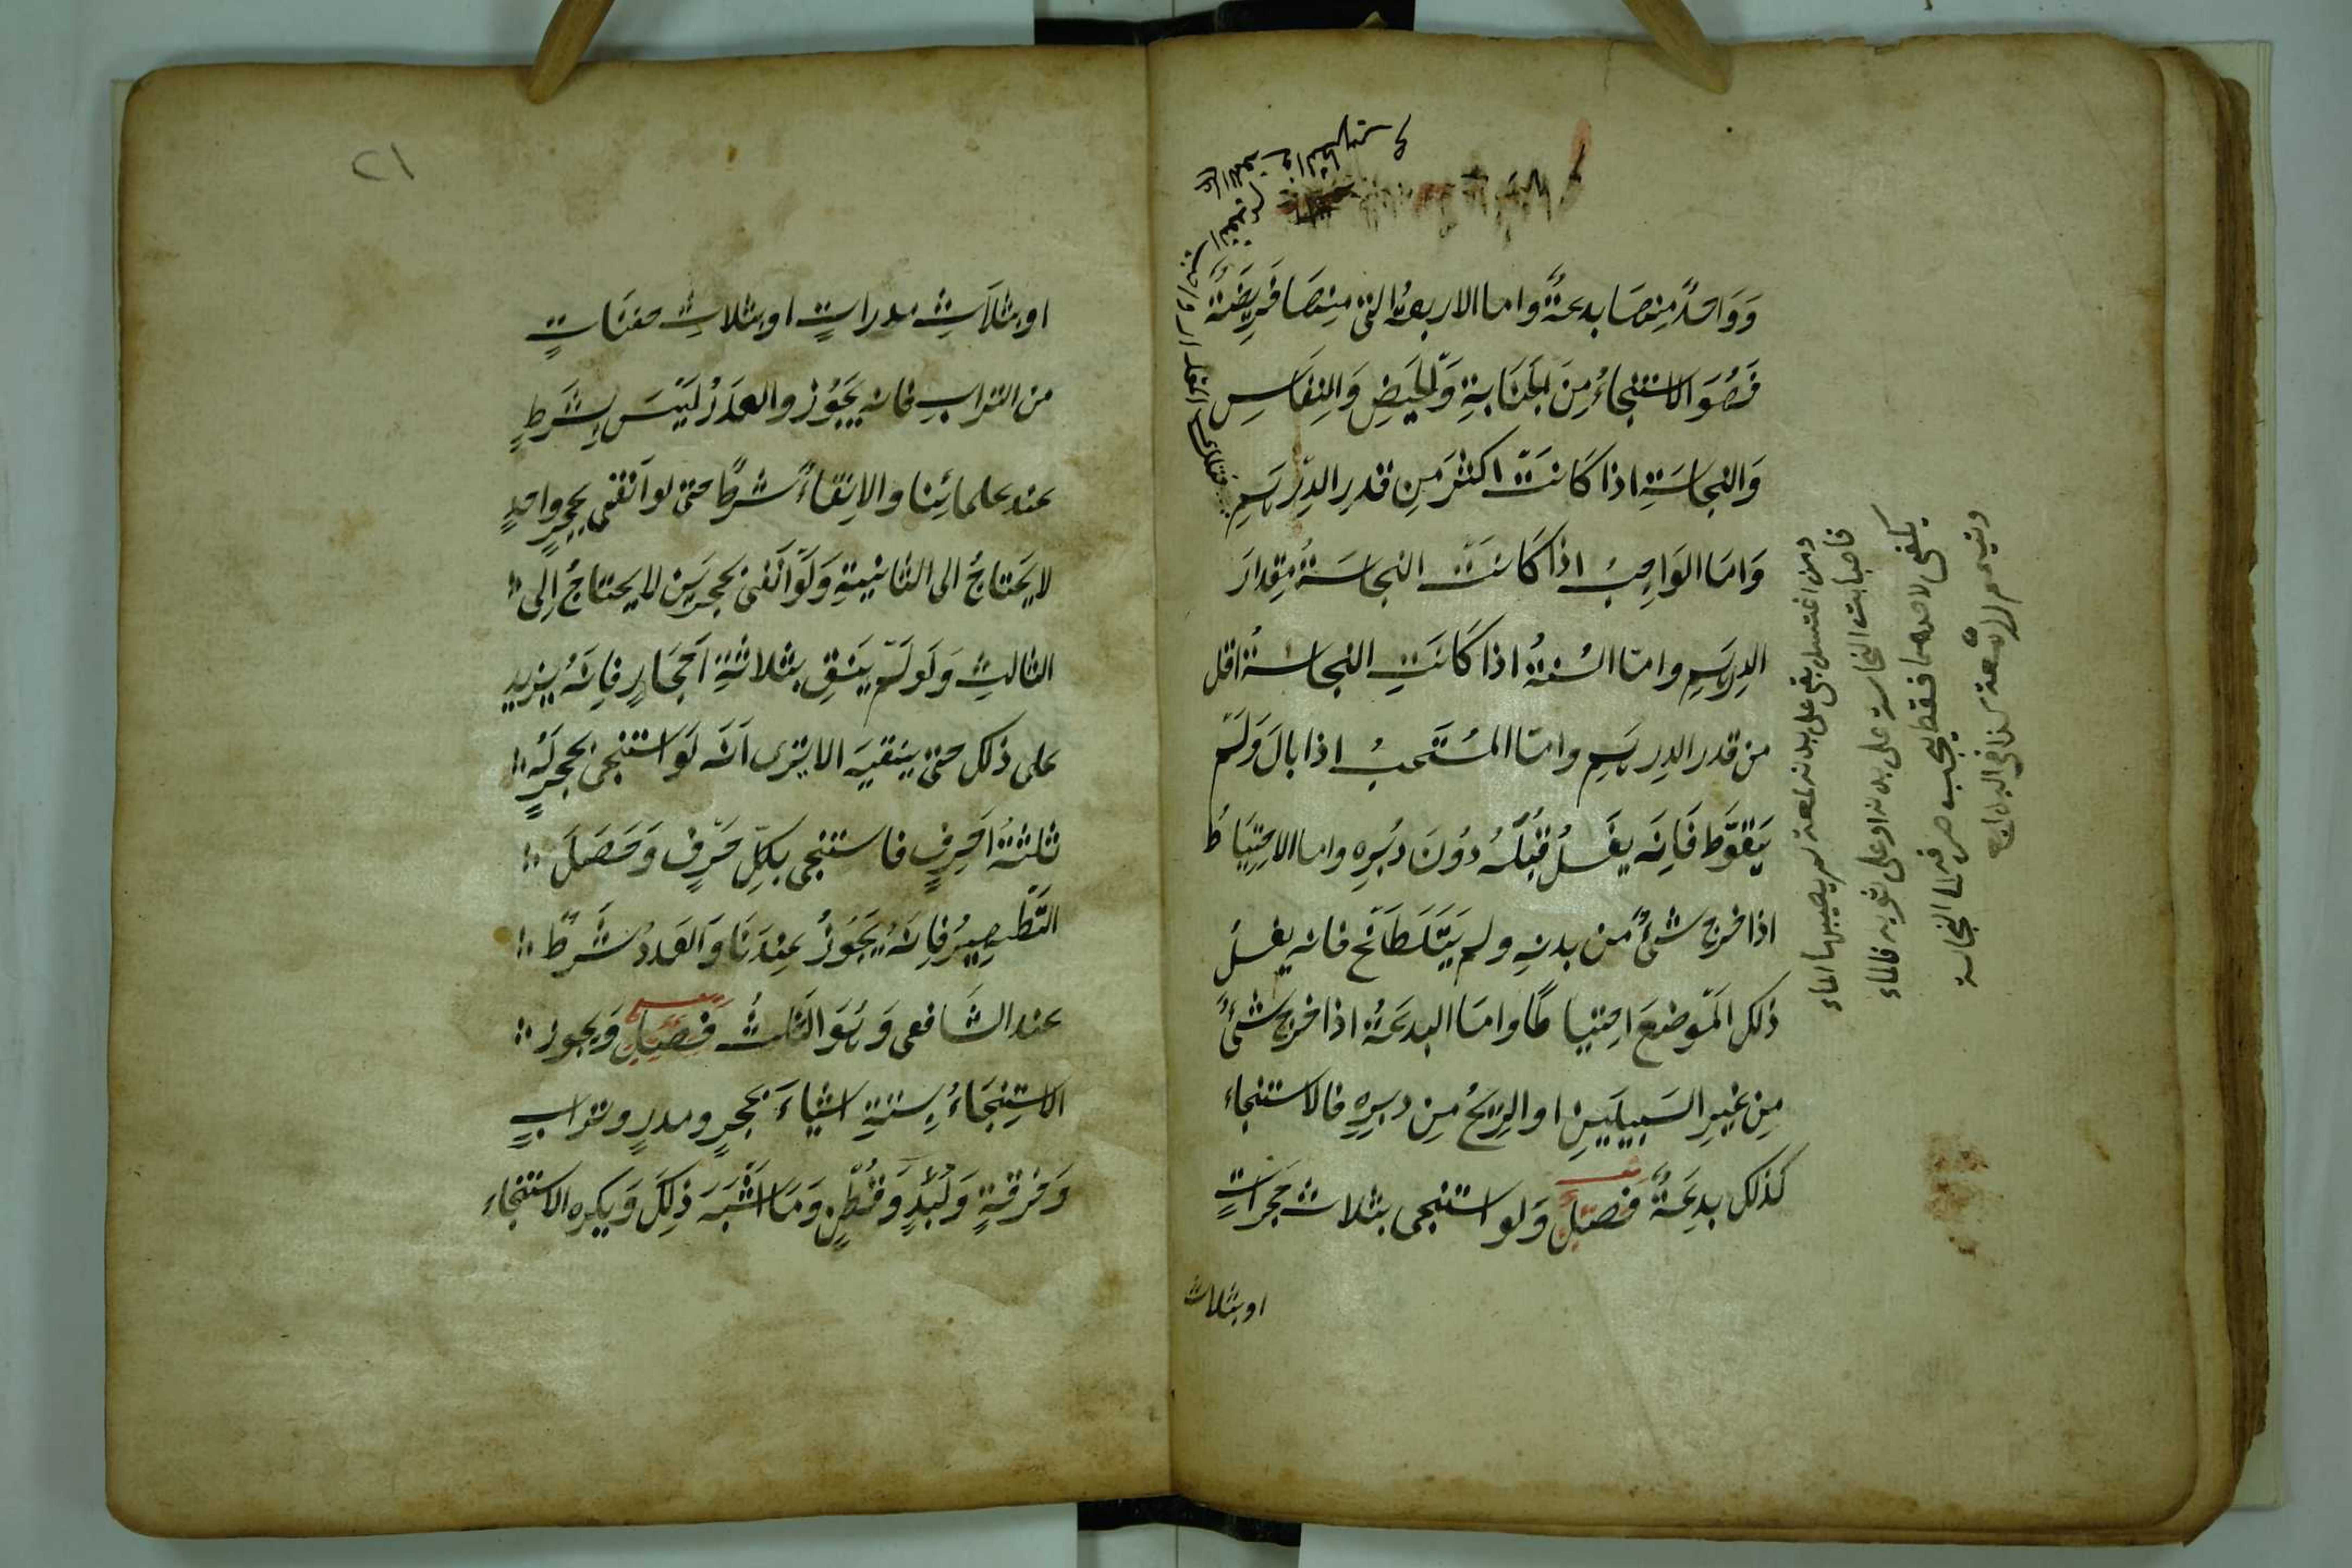 وَوَاحدٌ مِنهَا بدعةٌ واما الاربعةُ التى مِنهَا فَرِيضَةٌ
فَهُوَ الاستنجاءُ مِنَ الجَنَابةِ وَالحَيضِ وَالنِفَاسِ
وَالنجاسَةِ اذا كَانَتْ اكثرَ مِن قدرِ الدِرهَمِ
وَامَا الوَاجبُ اذا كَانَتْ النجاسَةُ مِقدارَ
الدِرهَمِ وامّا السُنةُ اذا كَانَتِ النجاسَةُ اقل
من قدر الدِرهَمِ وامّا المُستَحبُ اذا بالَ وَلَمْ
يَتَغَوَّط فَاِنَه يغَسلُ قُبُلَهُ دُونَ دُبُرِهِ واما الاحتِيَاطُ
اذا خرج شئٌ من بدنهِ ولم يَتَلَطَّخ فانه يغسلُ
ذلك المَوضعَ احتياطًا وامَا البدعَةُ اذا خرج شئٌ
مِن غيرِ السَبيلَينِ او الرِيحُ مِن دبرِهِ فالاستنجاء
كذلك بدعَةٌ فَصلٌ وَلو استنجى بثلاث حجراتٍ
او بثلاث
ومن اغتسل بقى على بدنه لمعة لم يصيبها الماء
فاصابت النجاسة على بدنه او على ثوبه فالماء
يكفى لاحدهما فقط يجب صرفه الى النجاسة
ويتيمم للمعة كذا فى
٢١
او بثلاَثِ مدراتٍ او بثلاثِ حفنَاتٍ
من الترابِ فانه يَجُوزُ والعدَدُ لَيْسَ بِشَرطٍ
عند علمائِنا والاِنقاءُ شرطٌ حتى لو اَنقى بحجرٍ واحدٍ
لا يَحتاجُ الى الثانيةِ وَلَوْ اَنقى بحجرَين لا يحتاجُ اِلى
الثالثِ وَلَو لَم يَنقِ بثلاثةِ اَحجَارٍ فاِنَهُ يزيد
على ذلك حتى ينقيَه الا يرى اَنَه لَو استنجى بحجرٍ لَهُ
ثلثةُ اَحرفٍ فاستنجى بكلِّ حَرْفٍ وَحَصَلَ
التَّطهِيرُ فاِنَهُ يَجُوزُ عِندَنَا وَالعَددُ شَرطٌ
عند الشَافعى وَهُوَ الثلثُ فَصلٌ وَيجوز
الاستِنجَاءُ بِستةِ اشياءَ بحجرٍ ومدرٍ وترابٍ
وَخرقةٍ وَلُبْدٍ وَقُطْنٍ وَمَا اَشْبَهَ ذلِكَ وَيكره الاستنجاء